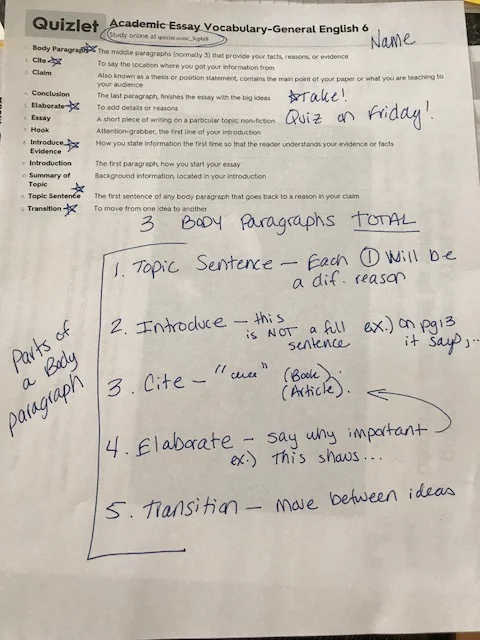 Quizlet Academic Essay Vocabulary-General English 6
Name
Study online at quizlet.com/_3xpbi8
1. Body Paragraph The middle paragraphs (normally 3) that provide your facts, reasons, or evidence
2. Cite To say the location where you got your information from
3. Claim Also known as a thesis or position statement, contains the main point of your paper or what you are teaching to
your audience
4. Conclusion The last paragraph, finishes the essay with the big ideas
Take!
5. Elaborate To add details or reasons
Quiz on Friday!
6. Essay A short piece of writing on a particular topic, non-fiction
7. Hook Attention-grabber, the first line of your introduction
8. Introduce How you state information the first time so that the reader understands your evidence or facts
Evidence
9. Introduction The first paragraph, how you start your essay
10. Summary of Background information, located in your introduction
Topic
11. Topic Sentence The first sentence of any body paragraph that goes back to a reason in your claim
12. Transition To move from one idea to another
3 Body Paragraphs TOTAL
Parts of
a Body
paragraph
1. Topic Sentence – Each 1 will be
a dif. reason
2. Introduce – this ex.) on pg13
is NOT a full it says,...
sentence
3. Cite – " " (Book).
(Article).
4. Elaborate – say why important
ex.) This shows...
5. Transition – Move between ideas